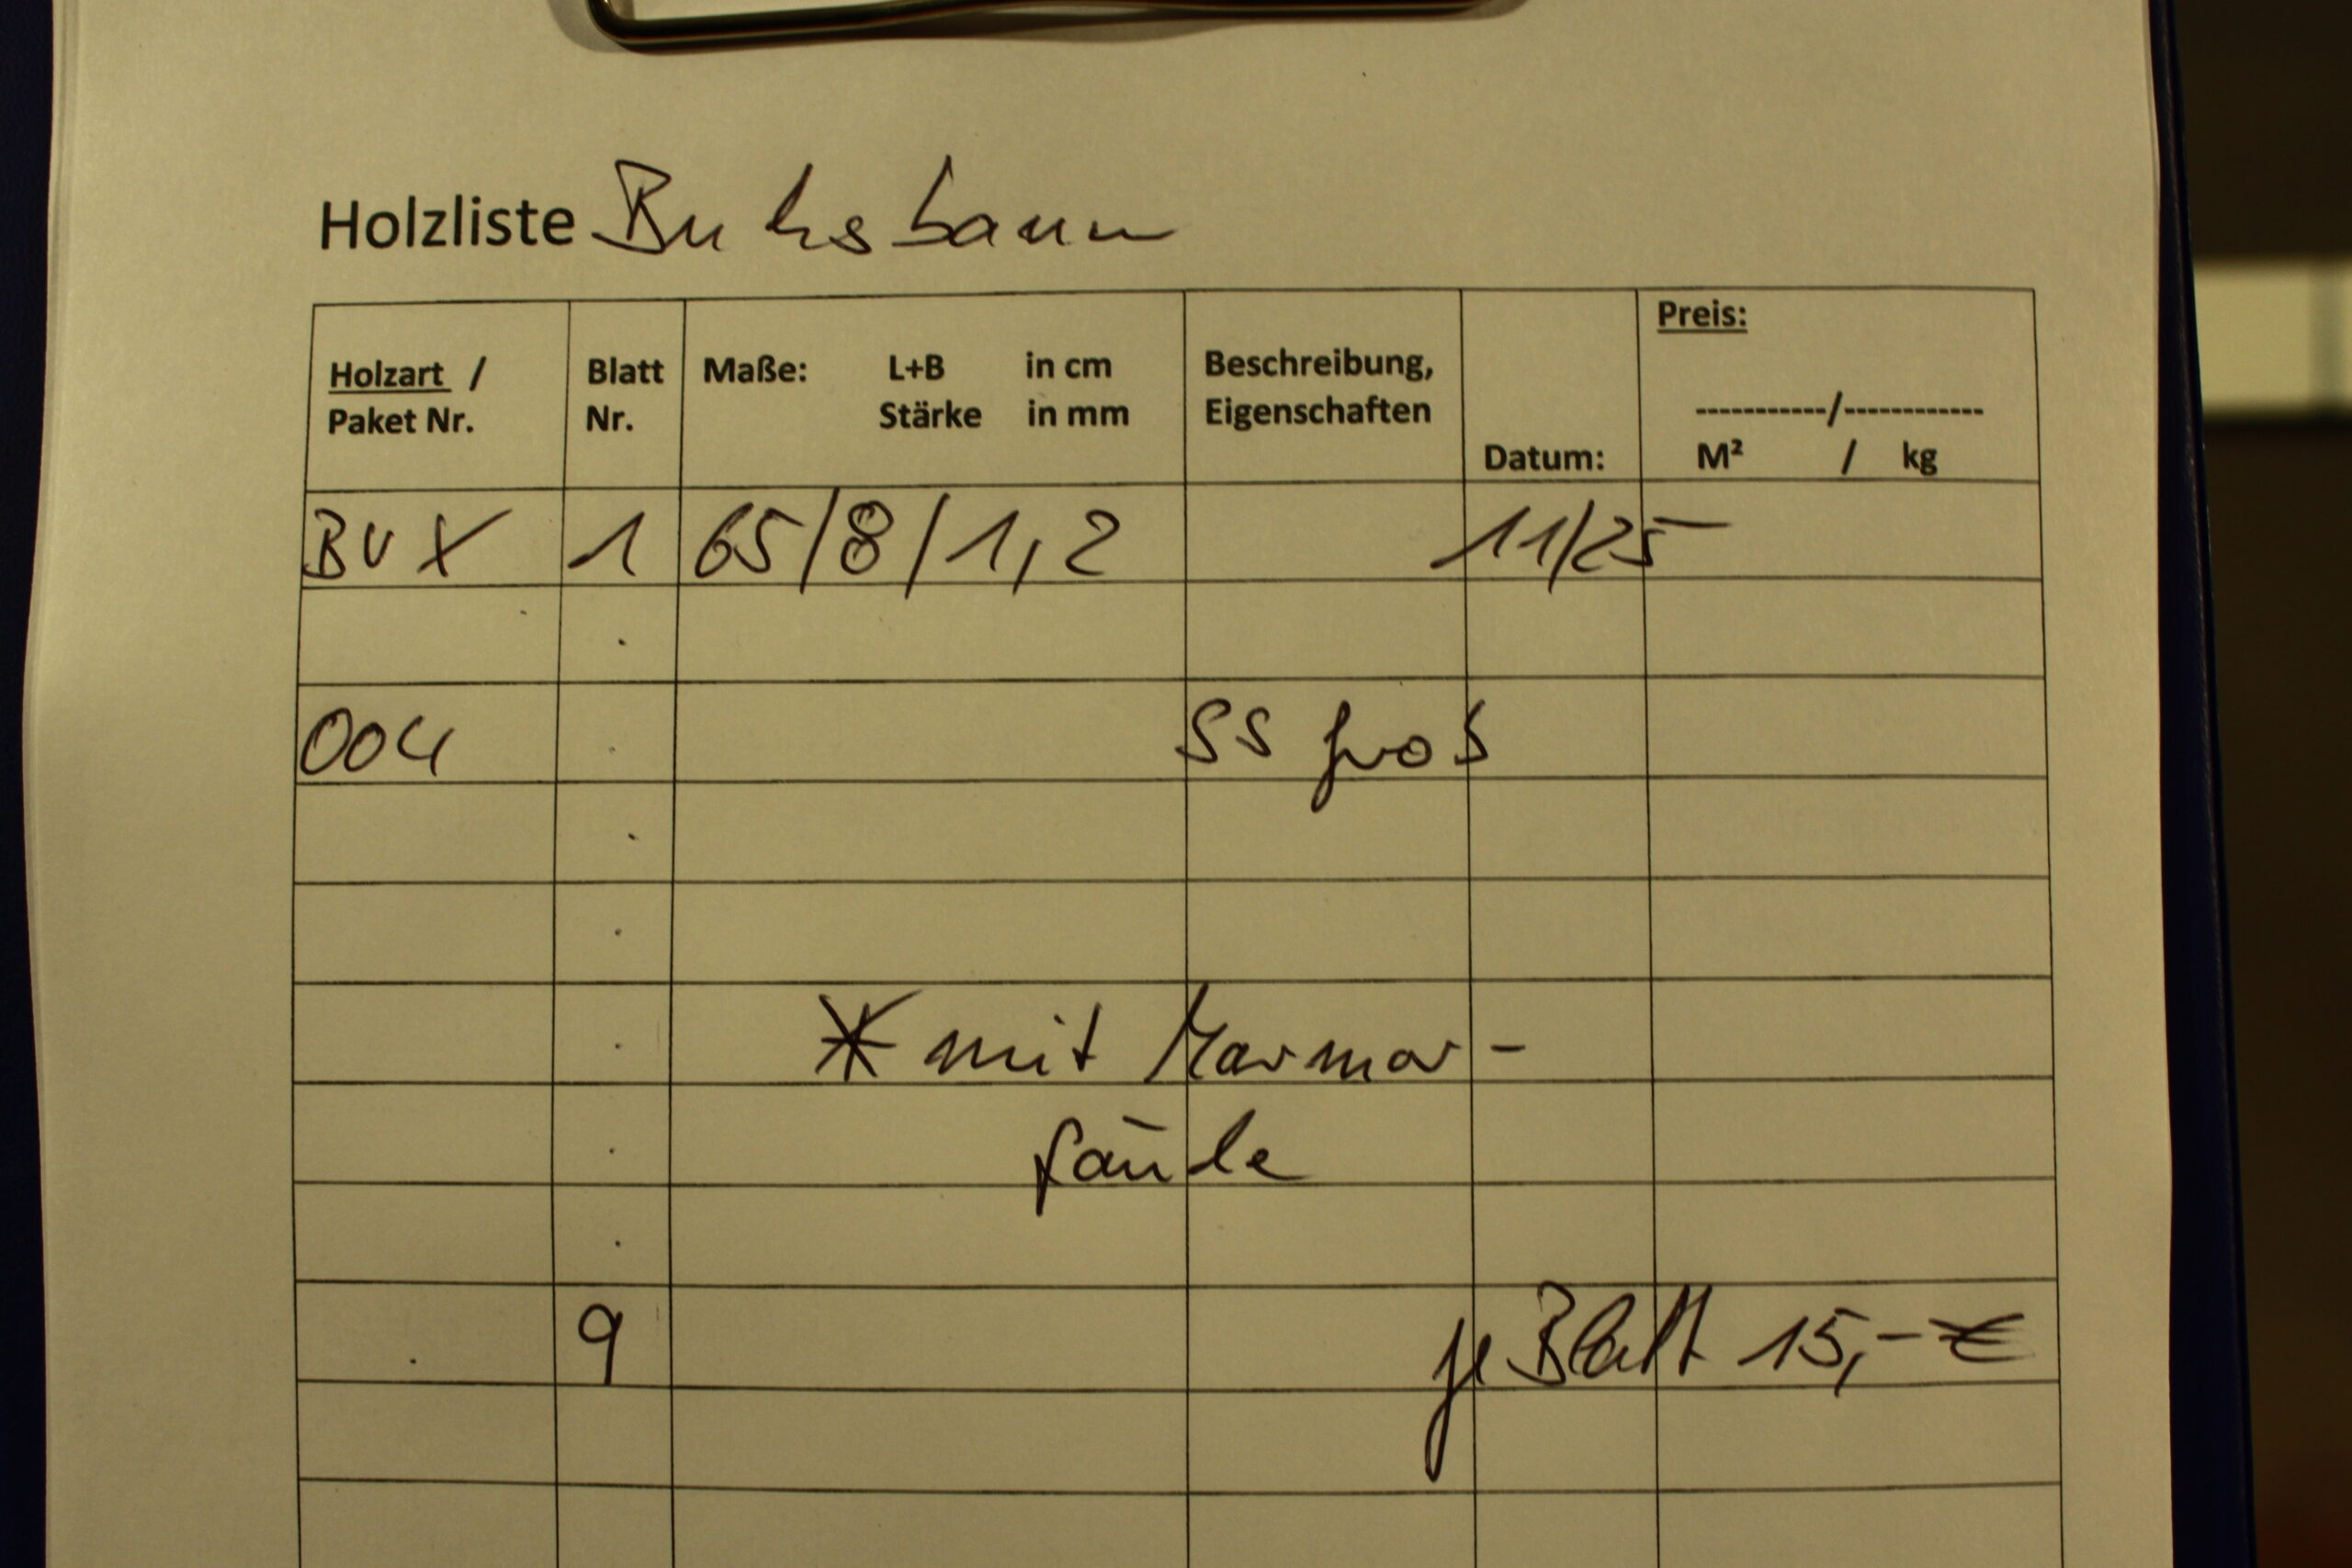 Holzliste Buchsbaum
Holzart / Paket Nr.
Blatt Nr.
Maße: L+B in cm
Stärke in mm
Beschreibung, Eigenschaften
Datum:
Preis:
-----------/------------
M² / kg
BUX 1 65/8/1,2 11/25
004 SS groß
* mit Marmor-
fäule
9 je Blatt 15,-€